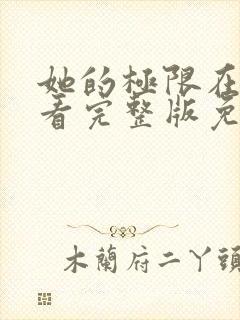 她的極限在
看完整版免
木蘭府二丫頭